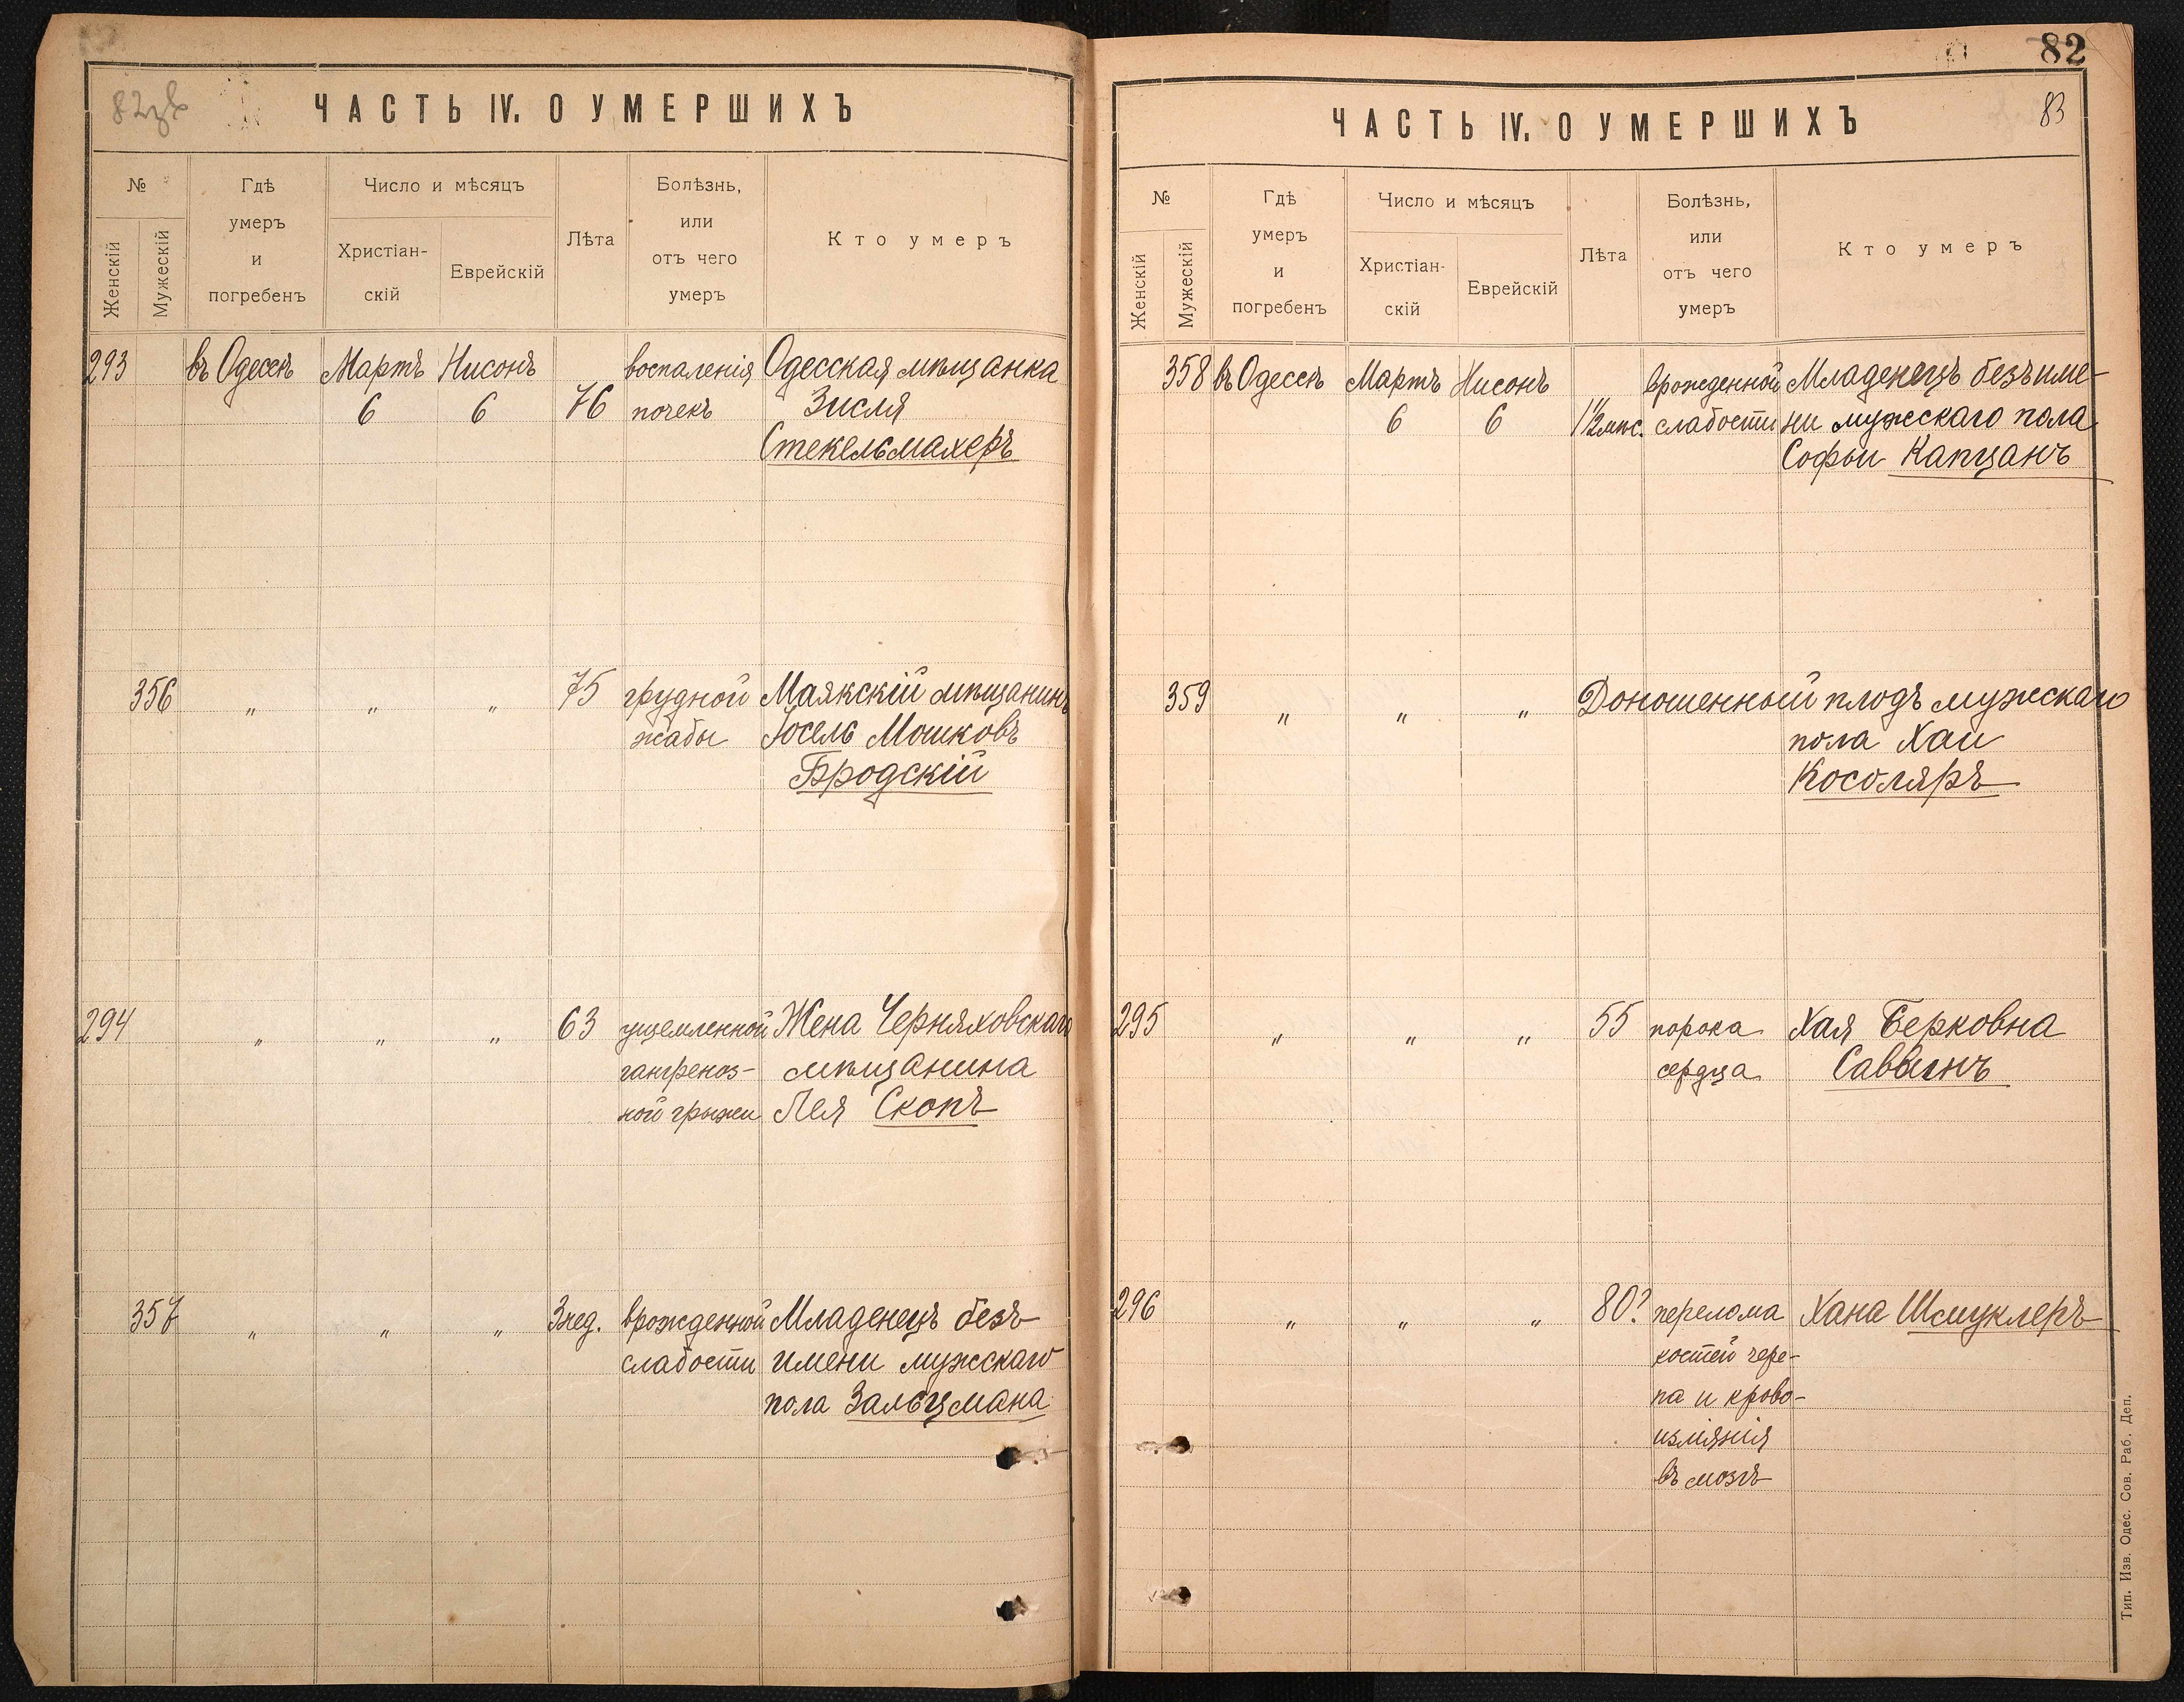 ЧАСТЬ IV. О УМЕРШИХЪ
№
Женскій
Мужескій
Гдѣ
умеръ
и
погребенъ
Число и мѣсяцъ
Христіан-
скій
Еврейскій
Лѣта
Болѣзнь,
или
отъ чего
умеръ
Кто умеръ
293 въ Одессѣ Мартъ Нисонъ воспаленія Одесская мѣщанка
6 6 76 почекъ Зисля
Стекельмахеръ
356 " " " 75 грудной Маякскій мѣщанинъ
жабы Іосель Мошковъ
Бродскій
294 " " " 63 ущемленной Жена Черняховскаго
гангреноз- мѣщанина
ной грыжи Лея Скопъ
357 " " " 3 нед. врожденной Младенецъ безъ
слабости имени мужскаго
пола Зальцмана
82
83
ЧАСТЬ IV. О УМЕРШИХЪ
№
Женскій
Мужескій
Гдѣ
умеръ
и
погребенъ
Число и мѣсяцъ
Христіан-
скій
Еврейскій
Лѣта
Болѣзнь,
или
отъ чего
умеръ
Кто умеръ
358 въ Одессѣ Мартъ Нисонъ врожденной Младенецъ безъ име-
6 6 1½ мѣс. слабости ни мужескаго пола
Софьи Капцанъ
359 " " " Доношенный плодъ мужескаго
пола Хаи
Косоляръ
295 " " " 55 порока Хая Берковна
сердца
296 " " " 80? перелома Хана Шмуклеръ
костей чере-
па и крово-
изліянія
въ мозгъ
Тип. Изв. Одес. Сов. Раб. Деп.